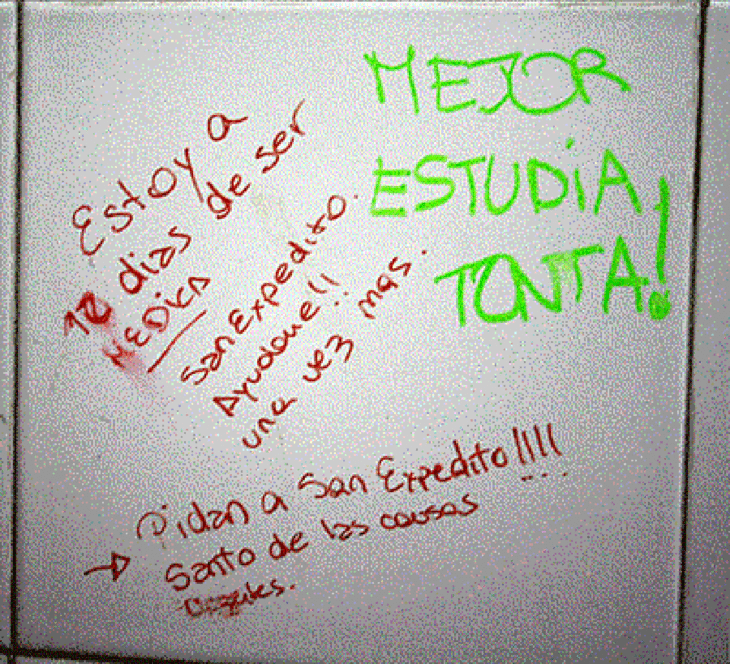 Estoy a
12 dias de ser
MEDICA
San Expedito.
Ayudame!!
una vez mas.
MEJOR
ESTUDIA
TONTA!
→ Pidan a San Expedito!!!!
Santo de las causas